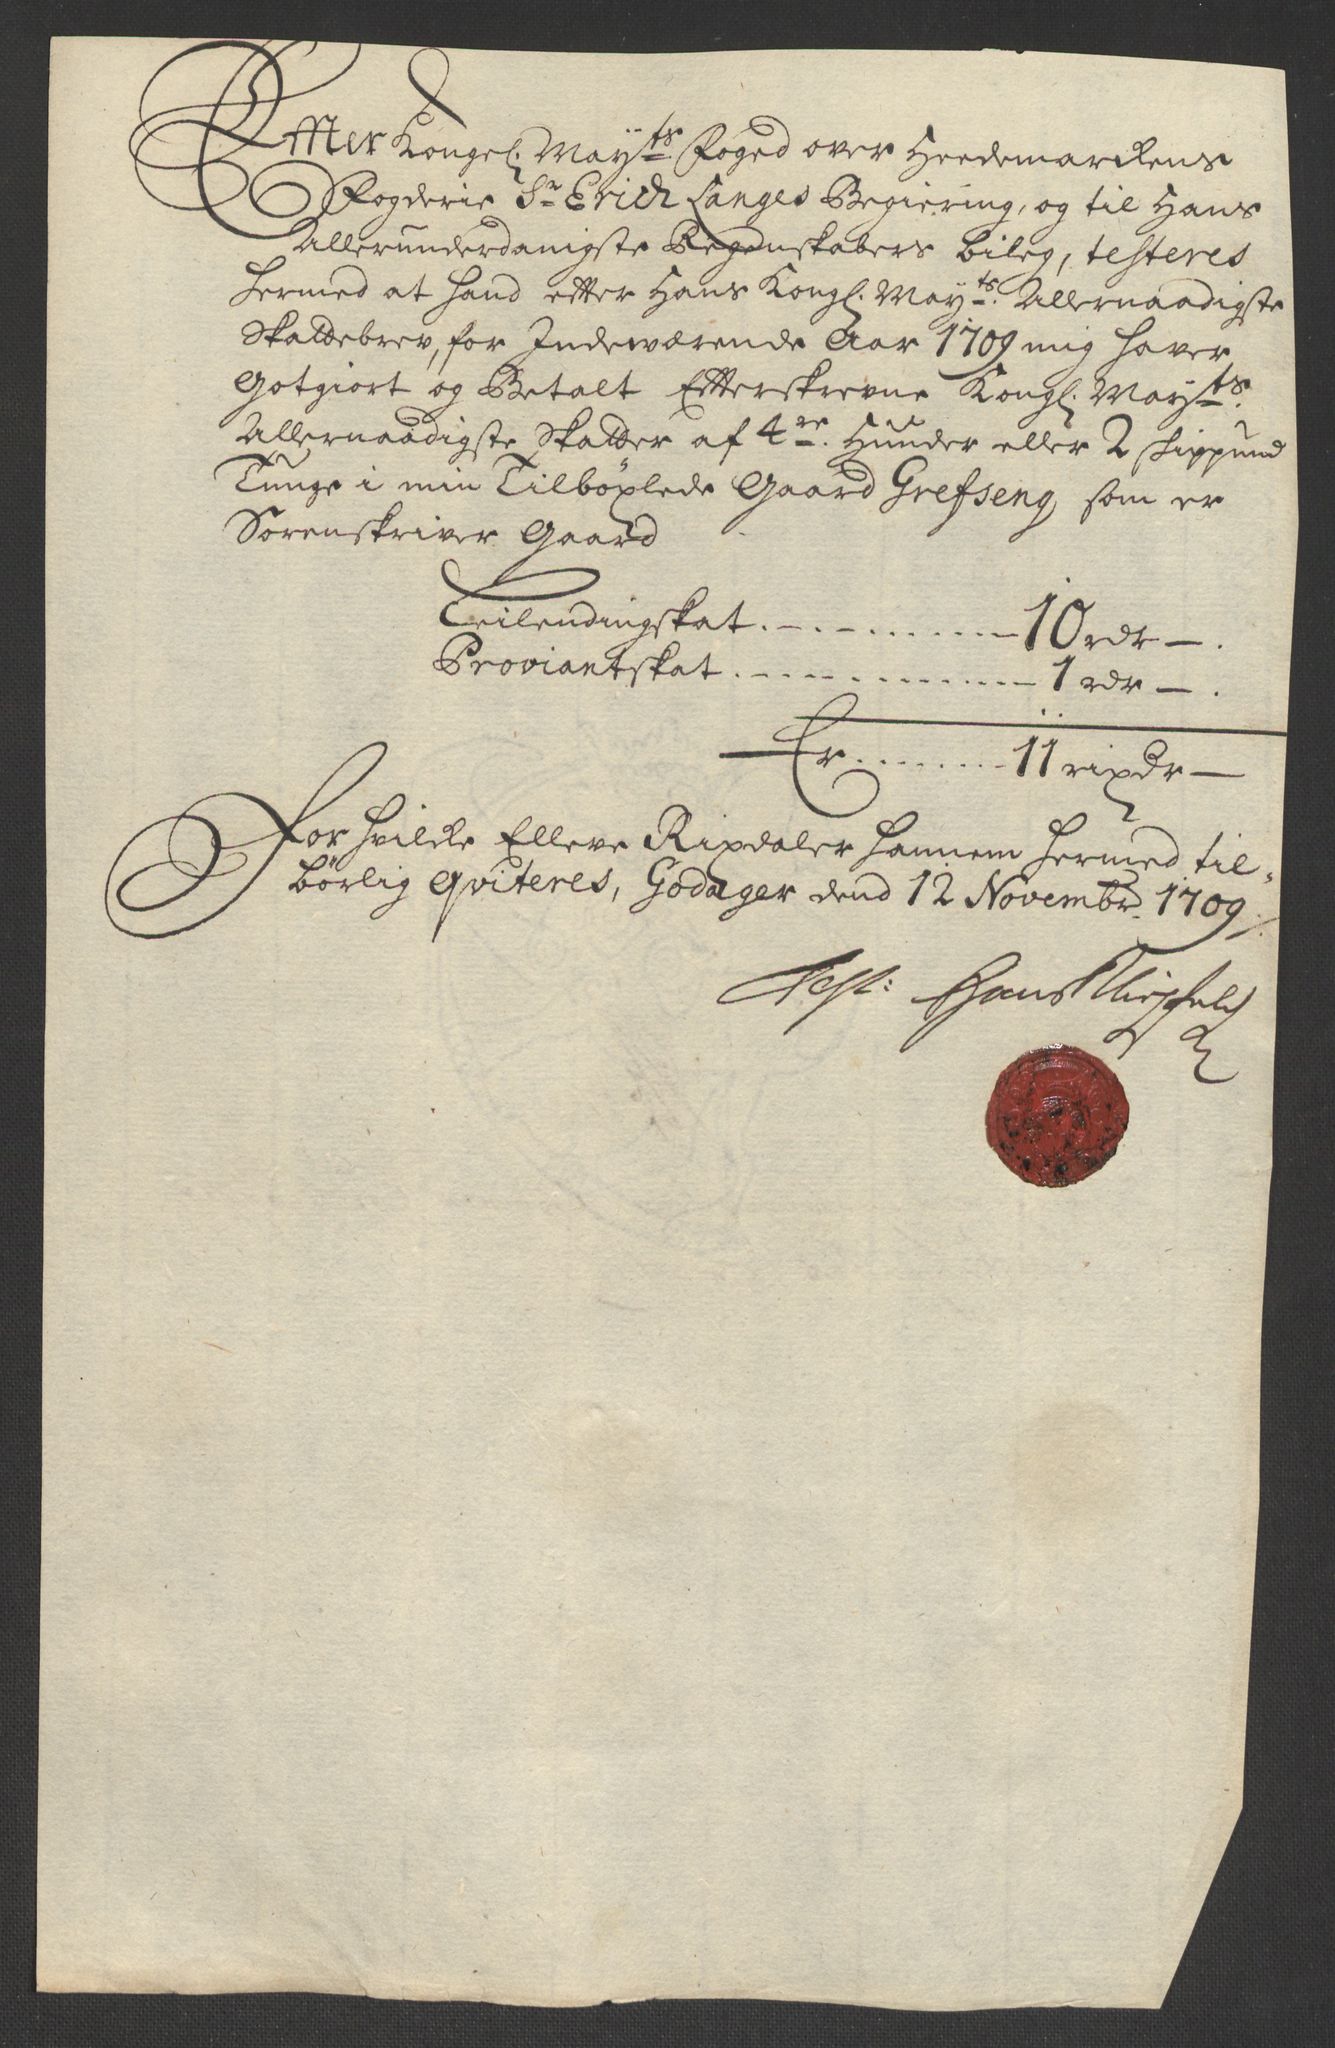 Effter Kongel. May:ts Foged over Heedemarckens
Fogderie Sr. Erich Langes Begiering, og til Hans
Allerunderdanigste Regenskabers bileg, testeres
hermed at hand efter Hans Kongl. May:ts. Allernaadigste
Skattebrev, for Indeværende Aar 1709 mig haver
Gotgiort og Betalt Efterskrevne Kongl. May:ts.
Allernaadigste Skatter af 4re. Huuder eller 2 skippund
Tunge i min Tilböxlede Gaard Grefseng som er
Sorenskriver Gaard
Leilendingskat. 10 rdr —.
Proviantskat. 1 rdr —.
Er 11 rixdr —
For hvilcke Elleve Rixdaler hannem hermed til-
börlig qviteres, Godager dend 12 Novembr. 1709
Test: Hans